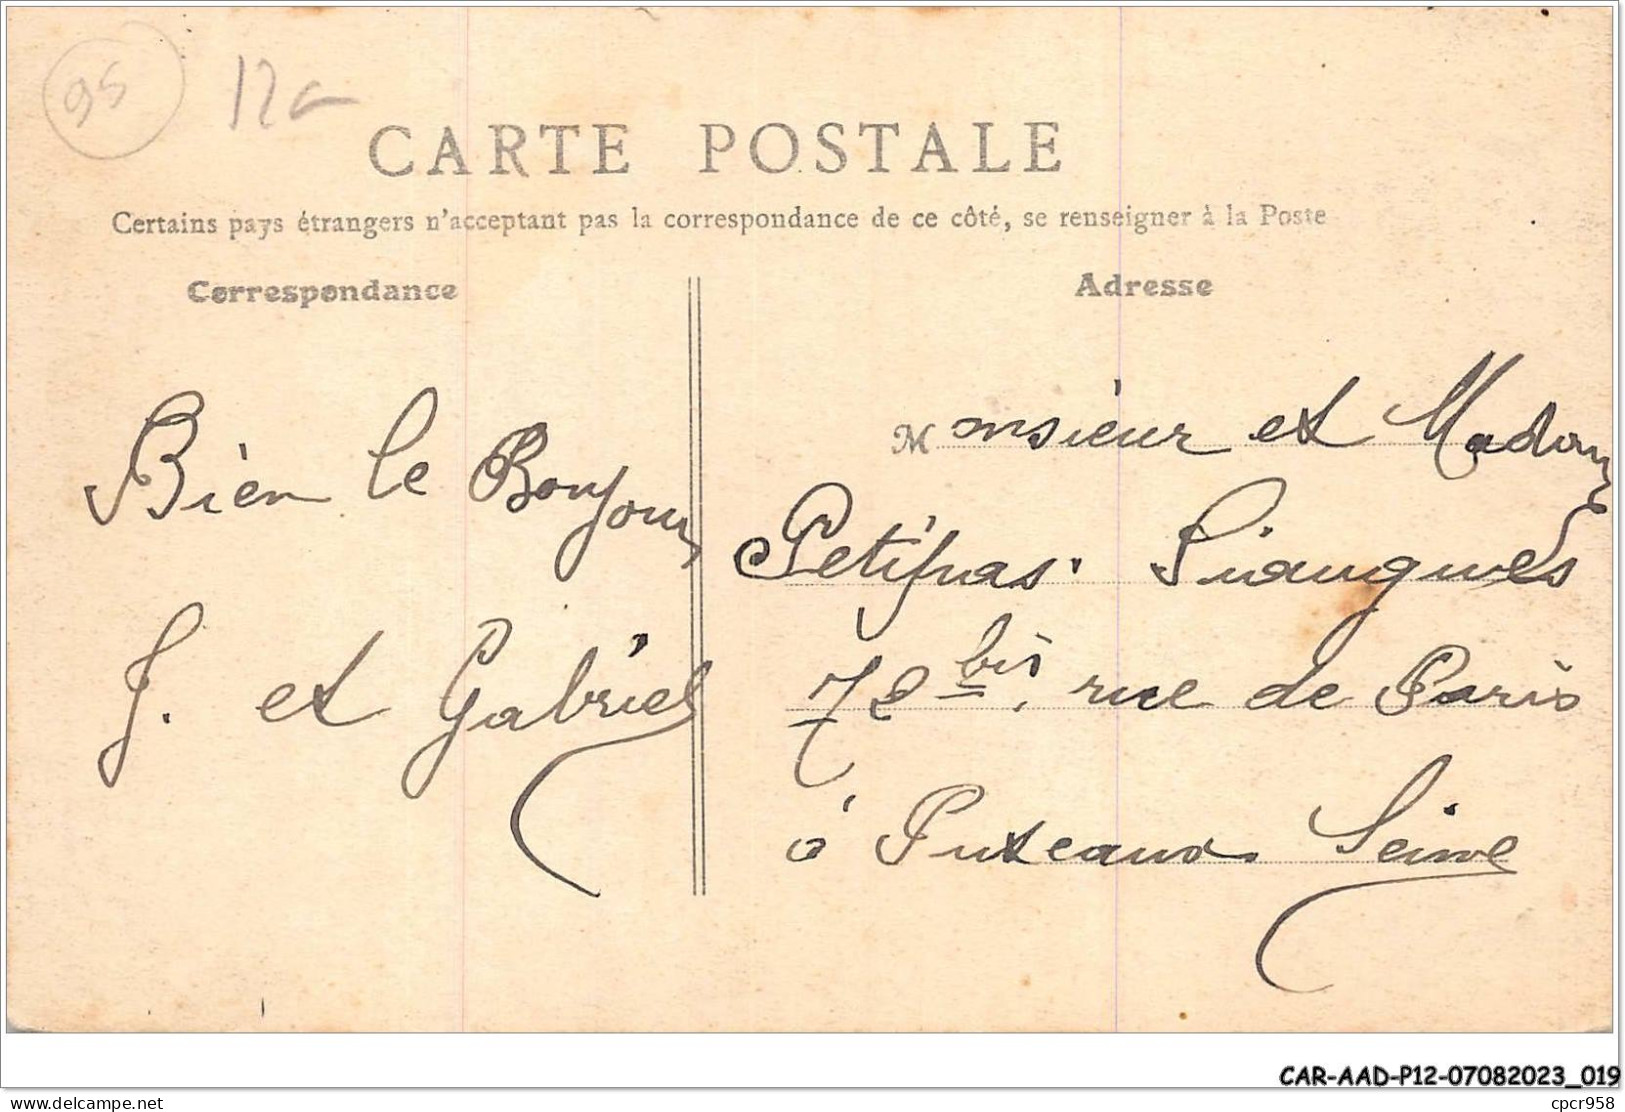 95
12
CARTE POSTALE
Certains pays étrangers n'acceptant pas la correspondance de ce côté, se renseigner à la Poste
Correspondance
Adresse
Bien le Bonjour
J. et Gabriel
Monsieur et Madame
Petitpas.
72 bis, rue de Paris
à Puteaux Seine
CAR-AAD-P12-07082023_019
www.delcampe.net
cpcr958